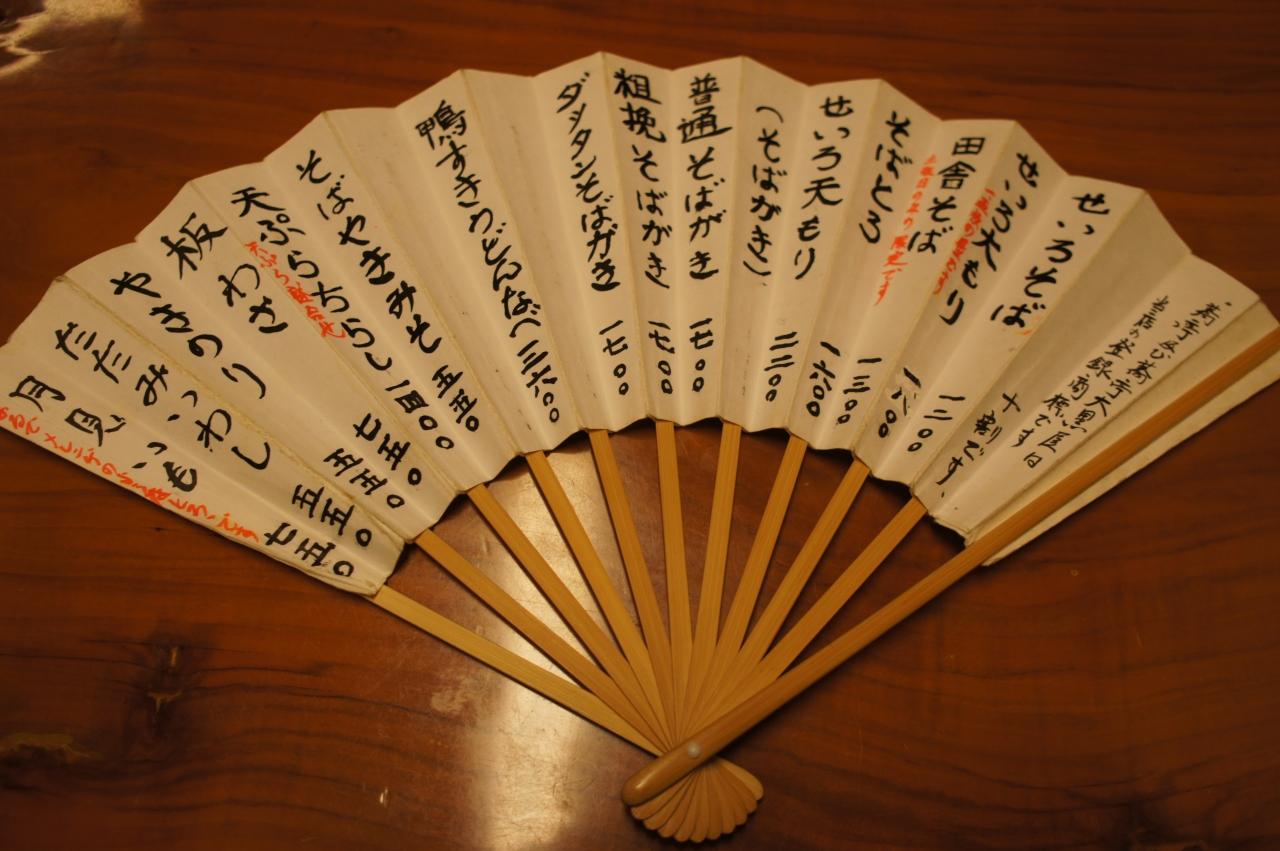 蕎亭及び蕎亭大黒屋は
当店の登録商標です
十割です、
せいろそば 一二〇〇
せいろ大もり 一八〇〇
田舎そば 一三〇〇
そばとろ 一六〇〇
せいろ天もり 二二〇〇
(そばがき)
普通そばがき 一七〇〇
粗挽そばがき 一七〇〇
ダッタンそばがき 一七〇〇
鴨すきうどんなべ 三六〇〇
そばやきみそ 五五〇
天ぷらちらし 一四〇〇
天ぷら盛合せ
板わさ 七五〇
やきのり 五五〇
たたみいわし 五五〇
月見いも 七五〇